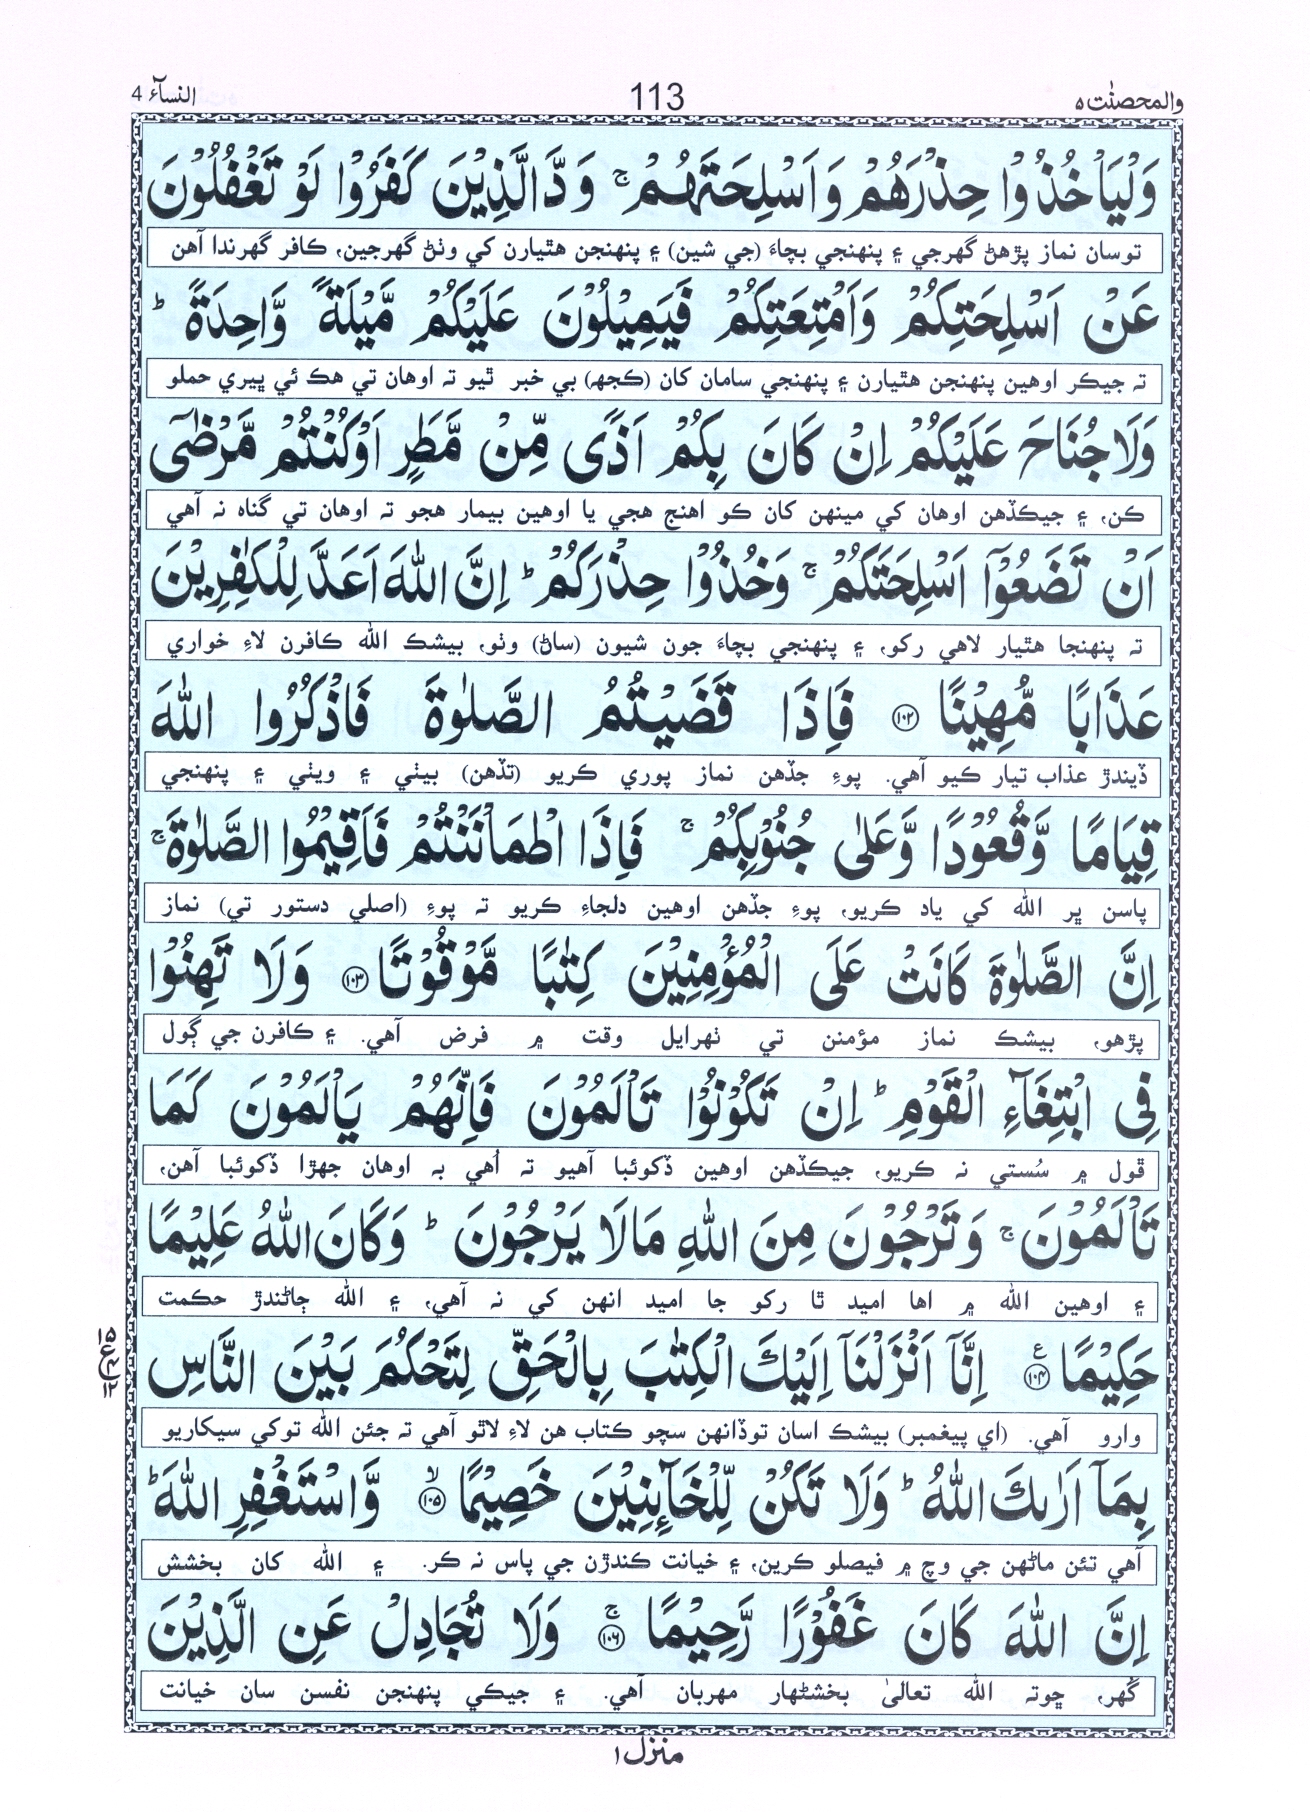 والمحصنٰت ٥ 113 النسآء 4
وَلْيَاْخُذُوْا حِذْرَهُمْ وَاَسْلِحَتَهُمْ ۚ وَدَّ الَّذِيْنَ كَفَرُوْا لَوْ تَغْفُلُوْنَ
توسان نماز پڙهڻ گهرجي ۽ پنهنجي بچاءَ (جي شين) ۽ پنهنجن هٿيارن کي وٺڻ گهرجين، ڪافر گهرندا آهن
عَنْ اَسْلِحَتِكُمْ وَاَمْتِعَتِكُمْ فَيَمِيْلُوْنَ عَلَيْكُمْ مَّيْلَةً وَّاحِدَةً ؕ
تہ جيڪر اوهين پنهنجن هٿيارن ۽ پنهنجي سامان کان (ڪجهہ) بي خبر ٿيو تہ اوهان تي هڪ ئي ڀيري حملو
وَلَا جُنَاحَ عَلَيْكُمْ اِنْ كَانَ بِكُمْ اَذًى مِّنْ مَّطَرٍ اَوْ كُنْتُمْ مَّرْضٰٓى
ڪن، ۽ جيڪڏهن اوهان کي مينهن کان ڪو اهنج هجي يا اوهين بيمار هجو تہ اوهان تي گناه نہ آهي
اَنْ تَضَعُوْٓا اَسْلِحَتَكُمْ ۚ وَخُذُوْا حِذْرَكُمْ ؕ اِنَّ اللّٰهَ اَعَدَّ لِلْكٰفِرِيْنَ
تہ پنهنجا هٿيار لاهي رکو، ۽ پنهنجي بچاءَ جون شيون (ساڻ) وٺو، بيشڪ الله ڪافرن لاءِ خواري
عَذَابًا مُّهِيْنًا ﴿۱۰۲﴾ فَاِذَا قَضَيْتُمُ الصَّلٰوةَ فَاذْكُرُوا اللّٰهَ
ڏيندڙ عذاب تيار ڪيو آهي. پوءِ جڏهن نماز پوري ڪريو (تڏهن) بيٺي ۽ ويٺي ۽ پنهنجي
قِيَامًا وَّقُعُوْدًا وَّعَلٰى جُنُوْبِكُمْ ۚ فَاِذَا اطْمَاْنَنْتُمْ فَاَقِيْمُوا الصَّلٰوةَ ۚ
پاسن ڀر الله کي ياد ڪريو، پوءِ جڏهن اوهين دلجاءِ ڪريو تہ پوءِ (اصلي دستور تي) نماز
اِنَّ الصَّلٰوةَ كَانَتْ عَلَى الْمُؤْمِنِيْنَ كِتٰبًا مَّوْقُوْتًا ﴿۱۰۳﴾ وَلَا تَهِنُوْا
پڙهو، بيشڪ نماز مؤمنن تي ٺهرايل وقت ۾ فرض آهي. ۽ ڪافرن جي ڳول
فِى ابْتِغَآءِ الْقَوْمِ ؕ اِنْ تَكُوْنُوْا تَاْلَمُوْنَ فَاِنَّهُمْ يَاْلَمُوْنَ كَمَا
ڦول ۾ سُستي نہ ڪريو، جيڪڏهن اوهين ڏکوئبا آهيو تہ اُهي بہ اوهان جهڙا ڏکوئبا آهن،
تَاْلَمُوْنَ ۚ وَتَرْجُوْنَ مِنَ اللّٰهِ مَالَا يَرْجُوْنَ ؕ وَكَانَ اللّٰهُ عَلِيْمًا
۽ اوهين الله ۾ اها اميد ٿا رکو جا اميد انهن کي نہ آهي، ۽ الله ڄاڻندڙ حڪمت
حَكِيْمًا ﴿۱۰۴﴾ ع اِنَّآ اَنْزَلْنَآ اِلَيْكَ الْكِتٰبَ بِالْحَقِّ لِتَحْكُمَ بَيْنَ النَّاسِ
وارو آهي. (اي پيغمبر) بيشڪ اسان توڏانهن سچو ڪتاب هن لاءِ لاٿو آهي تہ جئن الله توکي سيکاريو
بِمَآ اَرٰىكَ اللّٰهُ ؕ وَلَا تَكُنْ لِّلْخَآئِنِيْنَ خَصِيْمًا ﴿۱۰۵﴾ ۙ وَّاسْتَغْفِرِ اللّٰهَ ؕ
آهي تئن ماڻهن جي وچ ۾ فيصلو ڪرين، ۽ خيانت ڪندڙن جي پاس نہ ڪر. ۽ الله کان بخشش
اِنَّ اللّٰهَ كَانَ غَفُوْرًا رَّحِيْمًا ﴿۱۰۶﴾ ۚ وَلَا تُجَادِلْ عَنِ الَّذِيْنَ
گهر، ڇوتہ الله تعالىٰ بخشڻهار مهربان آهي. ۽ جيڪي پنهنجن نفسن سان خيانت
منزل ١